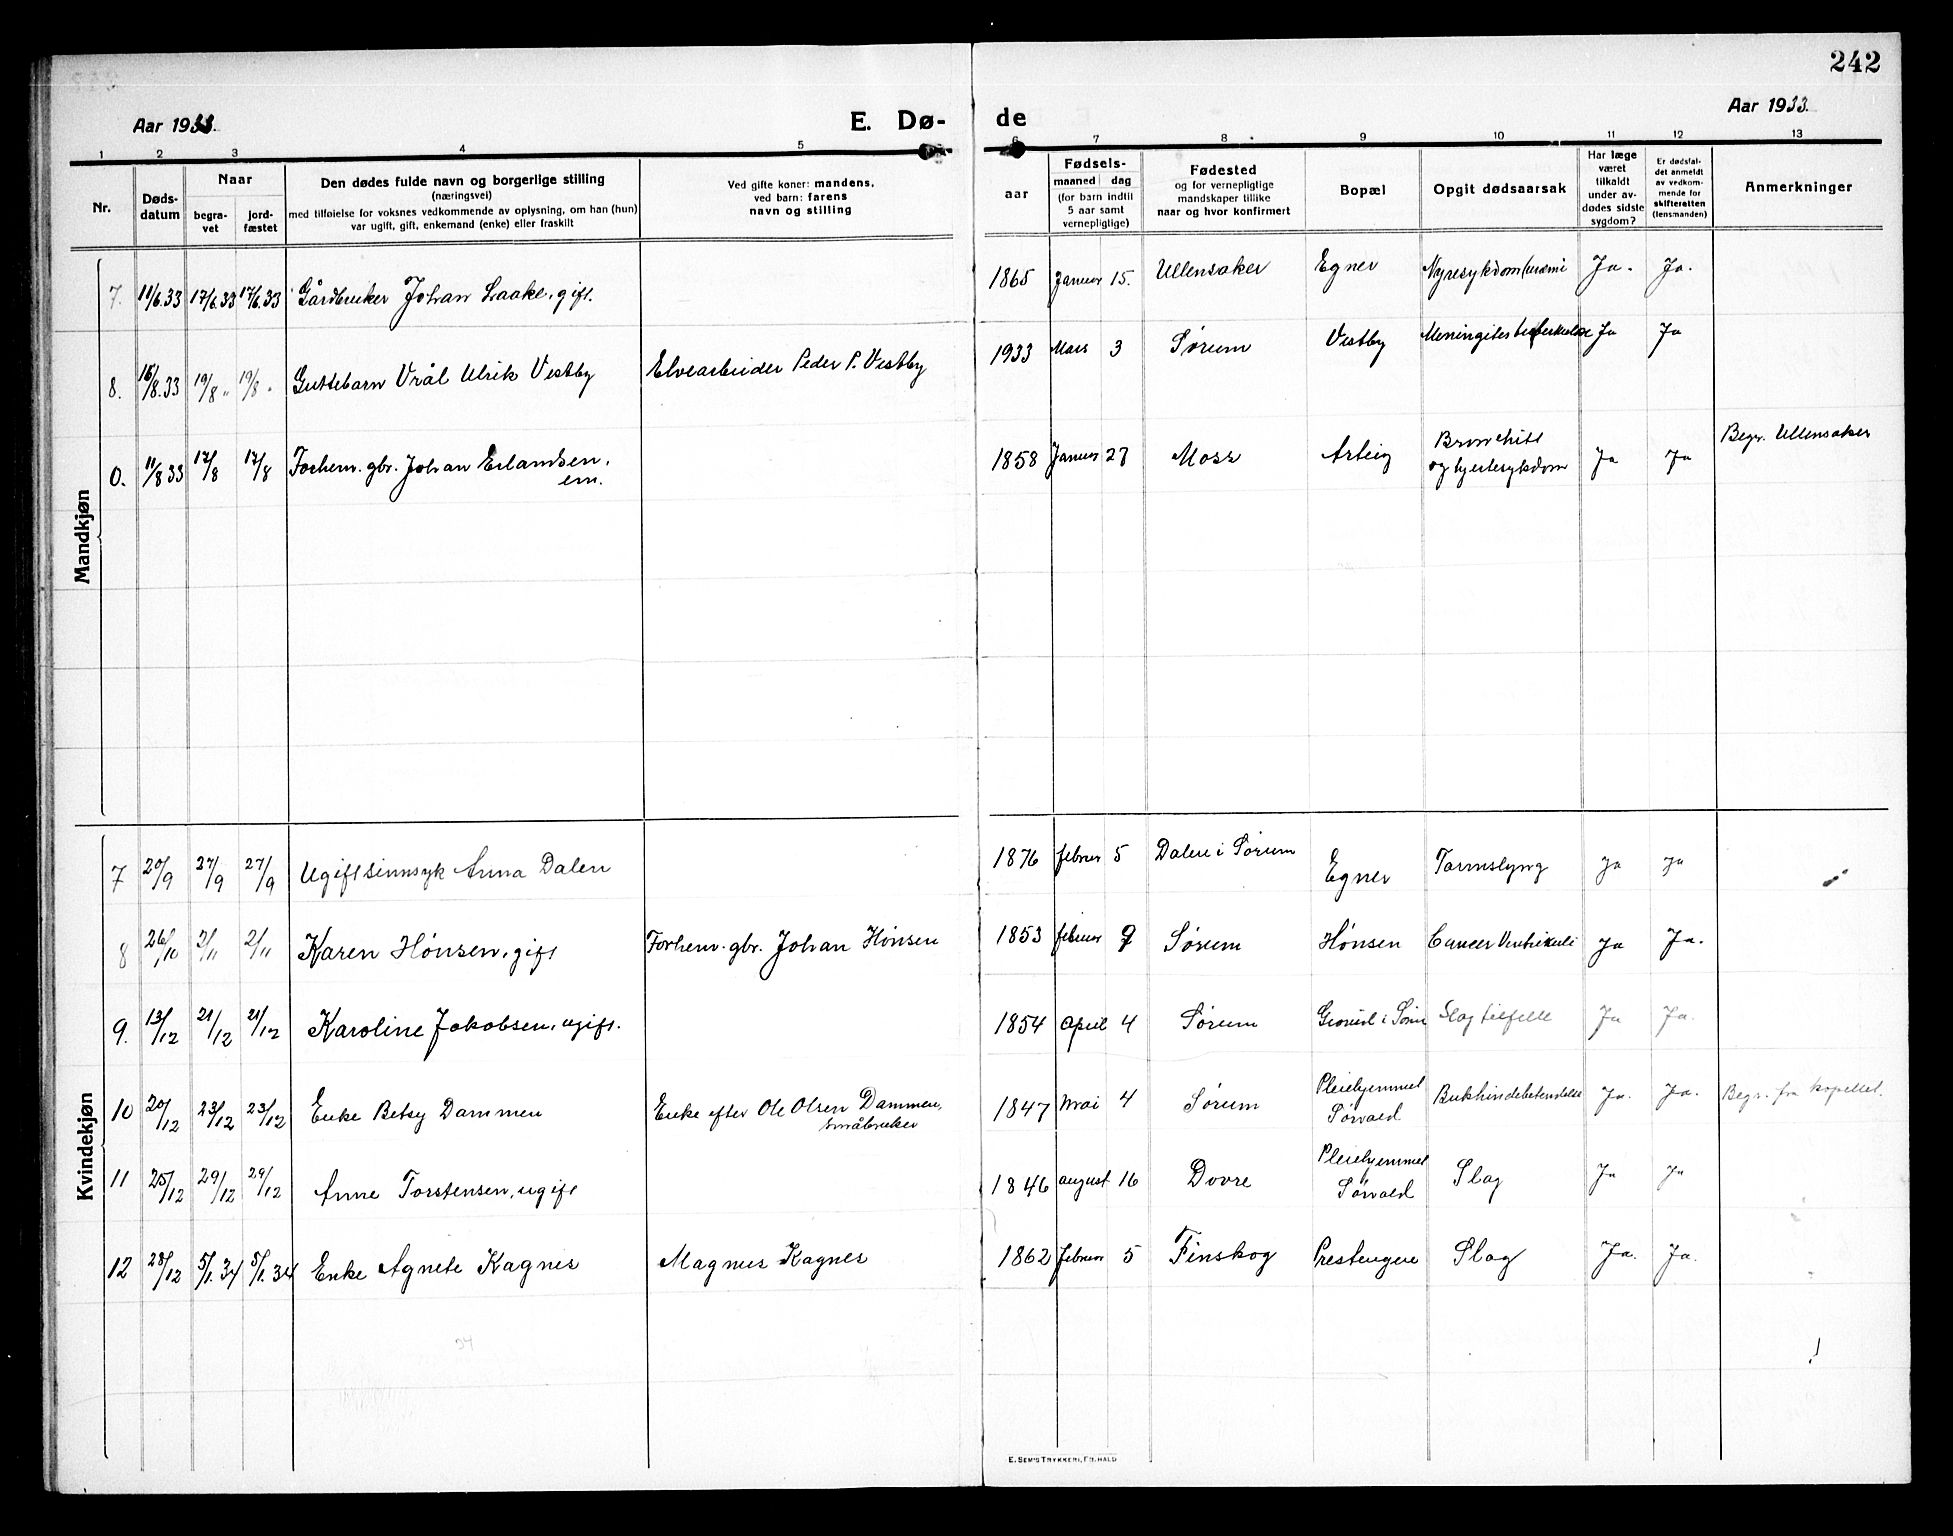 242
Aar 1933.
E. Dø-
de
Aar 1933.
1 2 3 4 5 6 7 8 9 10 11 12 13
Nr.
Døds-
datum
Naar
begra-
vet
jord-
fæstet
Den dødes fulde navn og borgerlige stilling
(næringsvei)
med tilføielse for voksnes vedkommende av oplysning, om han (hun)
var ugift, gift, enkemand (enke) eller fraskilt
Ved gifte koner: mandens,
ved barn: farens
navn og stilling
aar
Fødsels-
maaned dag
(for barn indtil
5 aar samt
vernepligtige)
Fødested
og for vernepligtige
mandskaper tillike
naar og hvor konfirmert
Bopæl
Opgit dødsaarsak
Har læge
været
tilkaldt
under av-
dødes sidste
sygdom?
Er dødsfal-
det anmeldt
av vedkom-
mende for
skifteretten
(lensmanden)
Anmerkninger
Mandkjøn
7. 11/6.33 17/6.33 17/6.33 Gårdbruker Johan Laake, gift. 1865 Januar 15. Ullensaker Egner Nyresykdom (uræmi Ja. Ja.
8. 16/8.33 19/8 " 19/8 " Guttebarn Vrål Ulrik Vestby Elvearbeider Peder P. Vestby 1933 Mars 3 Sørum Vestby Meningites tuberkuløse Ja Ja
0. 11/8 33 17/8 17/8 Forhenv. gbr. Johan Erlandsen,
em. 1858 Januar 27 Moss Arteig Bronchitt
og hjertesykdom Ja Ja Begr. Ullensaker
Kvindekjøn
7 20/9 27/9 27/9 Ugift sinnsyk Anna Dalen 1876 februar 5 Dalen i Sørum Egner Tarmslyng Ja Ja
8 26/10 2/11 2/11 Karen Hønsen, gift Forhenv. gbr. Johan Hønsen 1853 februar 9 Sørum Hønsen Cancer Ventrikuli Ja Ja.
9. 13/12 21/12 21/12 Karoline Jakobsen, ugift. 1854 April 4 Sørum i Sørum Slagtilfelle Ja Ja.
10 20/12 23/12 23/12 Enke Betsy Dammen Enke efter Ole Olsen Dammen,
småbruker 1847 Mai 4 Sørum Pleiehjemmet
Sørvald Bukhindebetendelse Ja. Ja. Begr. fra kapellet.
11 25/12 29/12 29/12 Anne Torstensen, ugift 1846 august 16 Dovre Pleiehjemmet
Sørvald Slag Ja Ja
12 28/12 5/1.34 5/1.34 Enke Agnete Kagnes Magnus Kagnes 1862 februar 5 Finskog Prestengene Slag Ja. Ja.
E. SEM'S TRYKKERI, FR.HALD